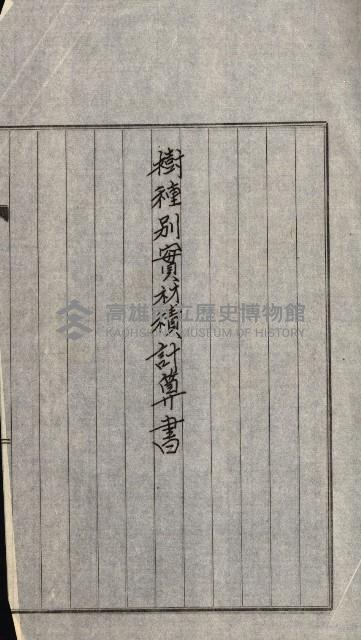 樹種別實材積計算書
高雄市立歷史博物館
KAOHSIUNG MUSEUM OF HISTORY